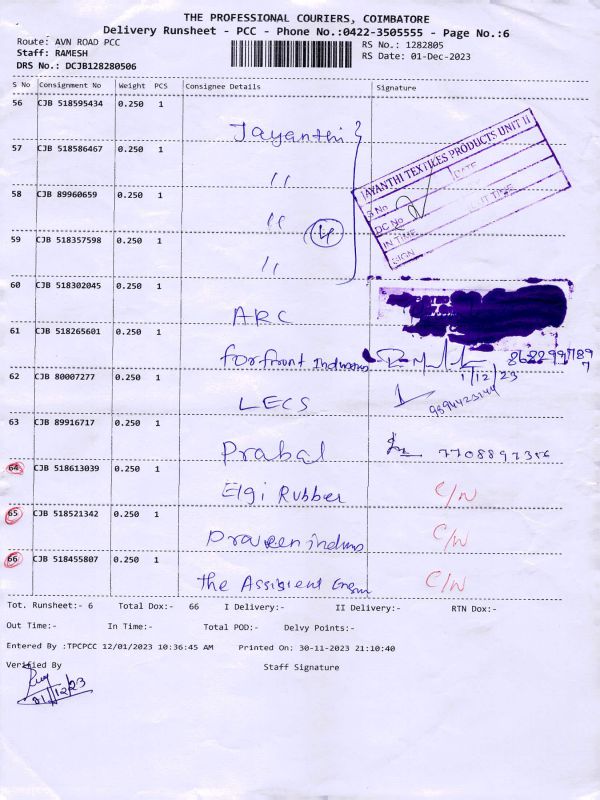 THE PROFESSIONAL COURIERS, COIMBATORE
Delivery Runsheet - PCC - Phone No.:0422-3505555 - Page No.:6
Route: AVN ROAD PCC RS No.: 1282805
Staff: RAMESH RS Date: 01-Dec-2023
DRS No.: DCJB128280506
S No Consignment No Weight PCS Consignee Details Signature
56 CJB 518595434 0.250 1 Jayanthi
57 CJB 518586467 0.250 1 "
58 CJB 89960659 0.250 1 "
59 CJB 518357598 0.250 1 "
4
JAYANTHI TEXTILES PRODUCTS UNIT II
S.No DATE
DC No
IN TIME OUT TIME
SIGN
60 CJB 518302045 0.250 1 ARC
61 CJB 518265601 0.250 1 forfront
1/12/23
62 CJB 80007277 0.250 1 LECS
63 CJB 89916717 0.250 1 Prabal
64 CJB 518613039 0.250 1 Elgi Rubber C/N
65 CJB 518521342 0.250 1 Praveen C/N
66 CJB 518455807 0.250 1 the C/N
Tot. Runsheet:- 6 Total Dox:- 66 I Delivery:- II Delivery:- RTN Dox:-
Out Time:- In Time:- Total POD:- Delvy Points:-
Entered By :TPCPCC 12/01/2023 10:36:45 AM Printed On: 30-11-2023 21:10:40
Verified By Staff Signature
01/12/23